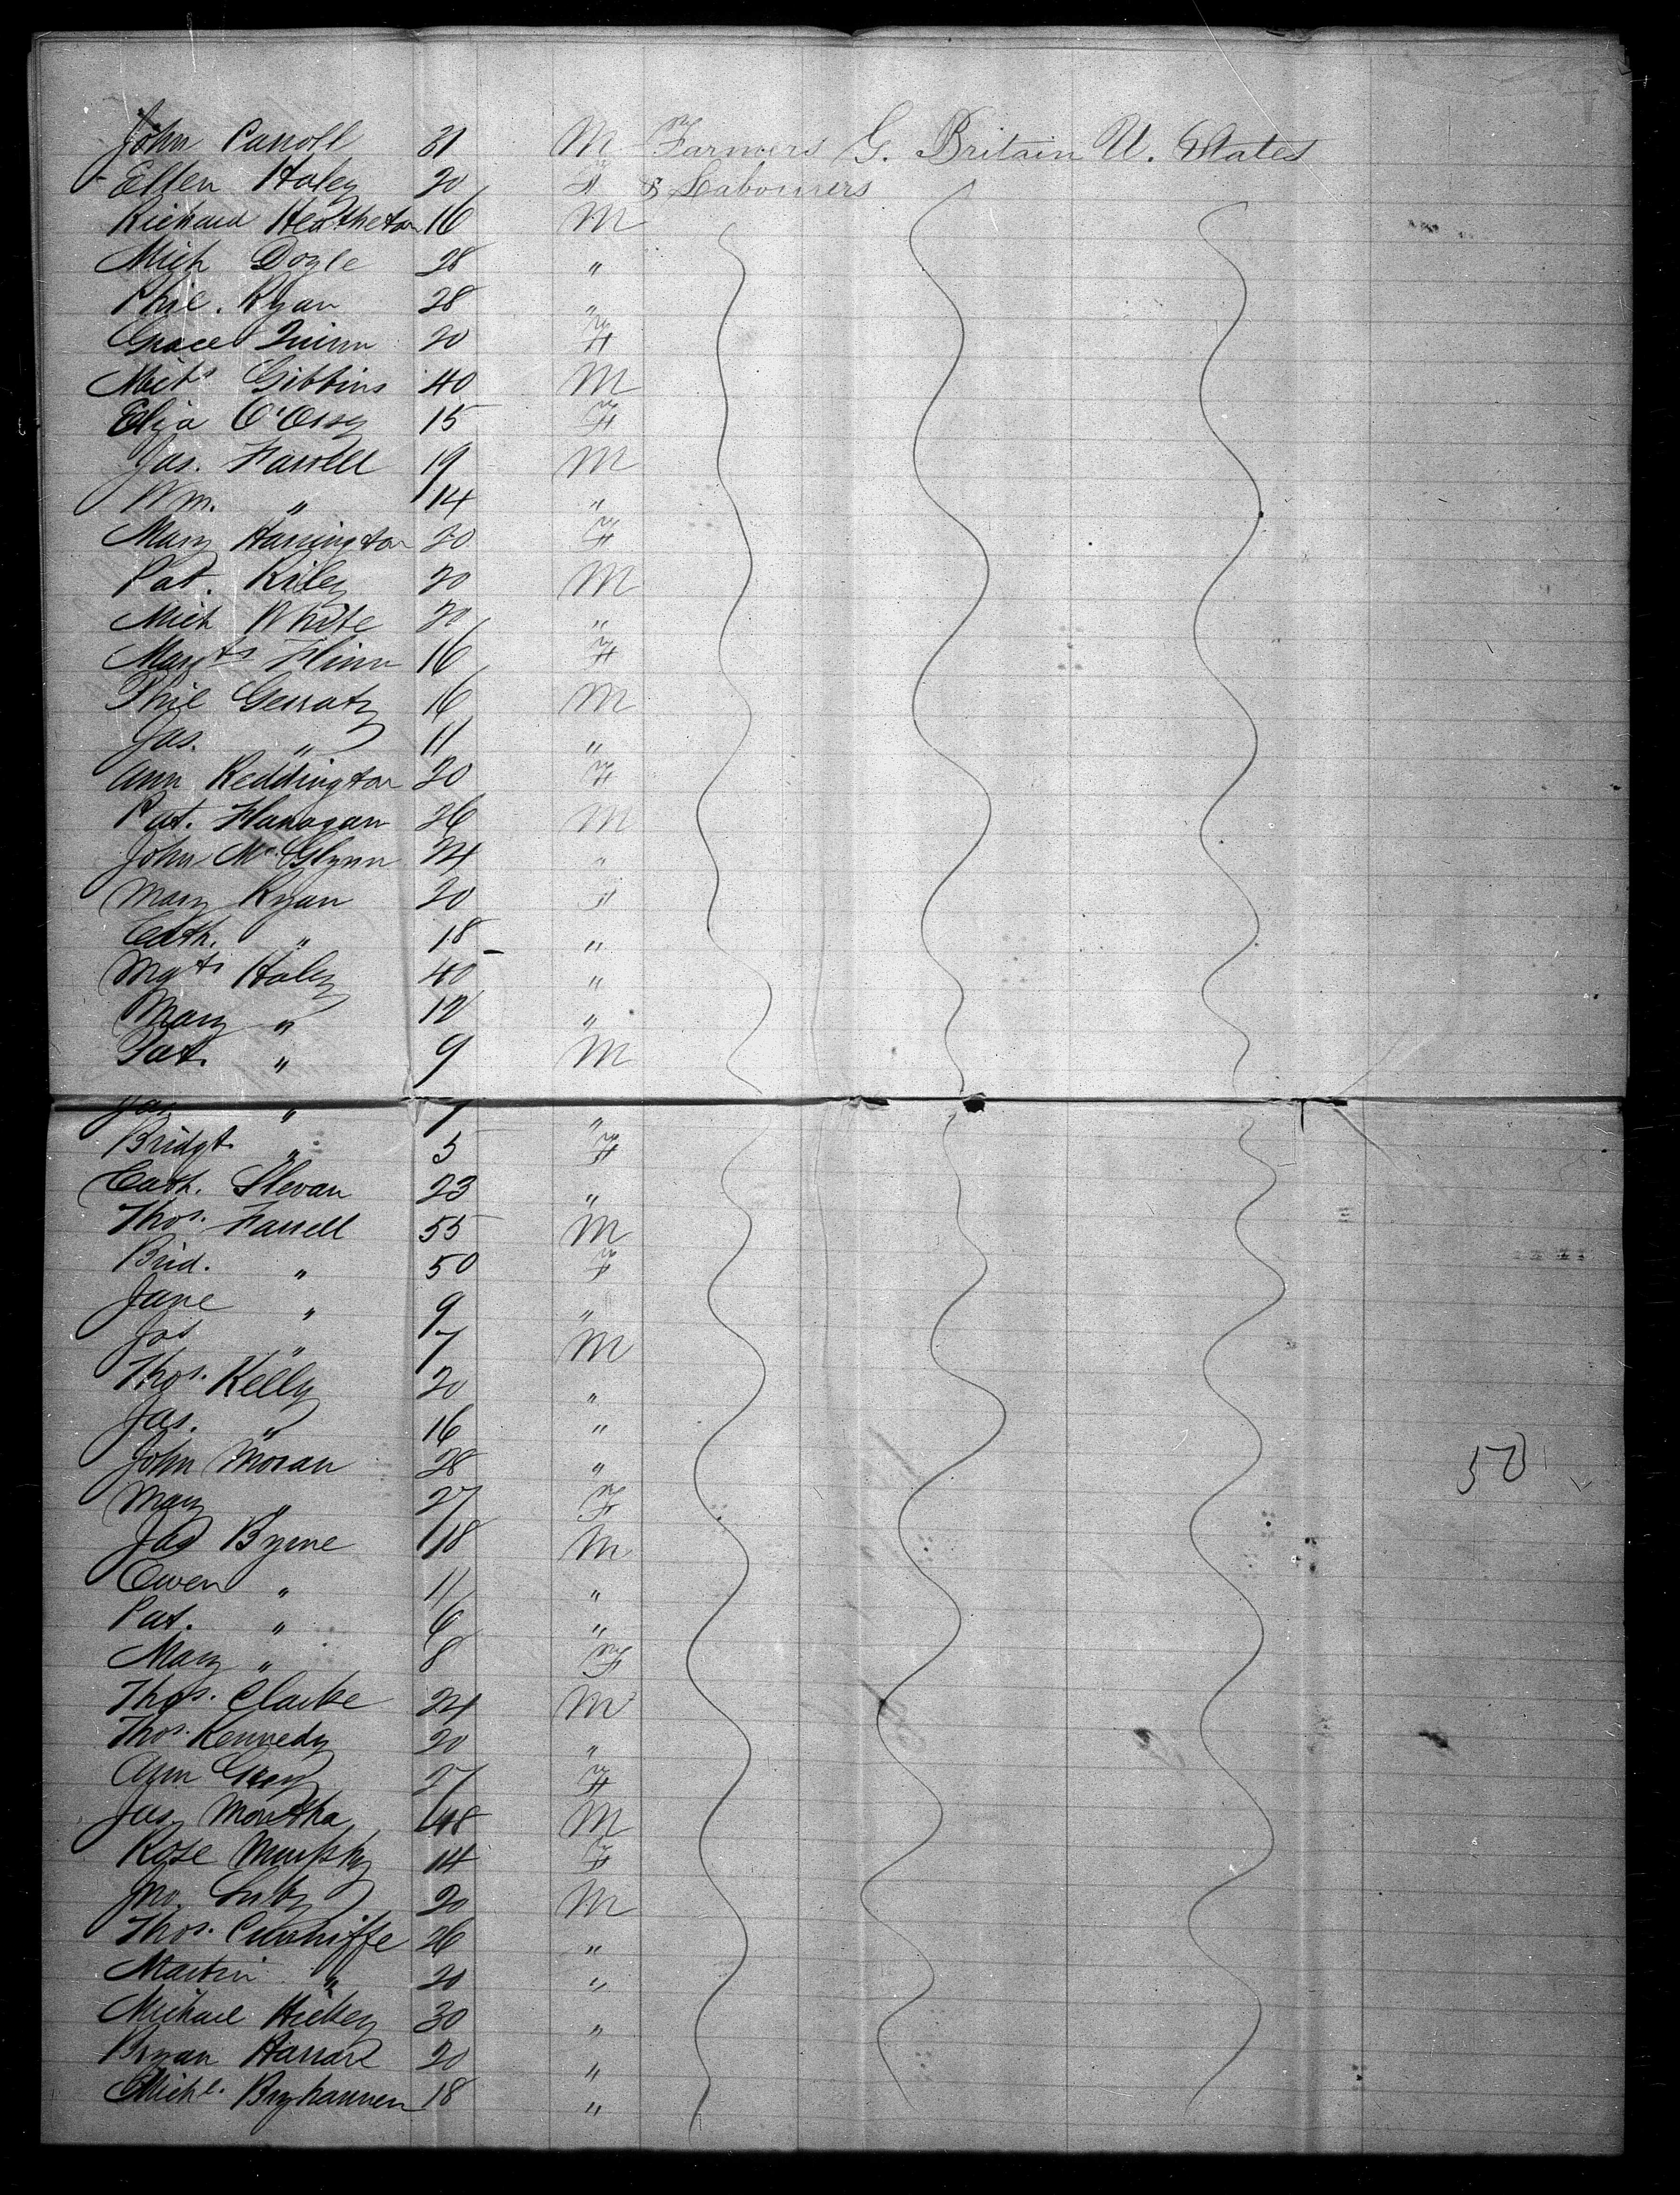 John Carroll 31 M Farmers G. Britain U. States
Ellen Haley 20 F & Labourers
Richard Heatheton 16 M
Mich Doyle 28 "
Phil. Ryan 28 "
Grace Quinn 20 F
Mich Gibbins 40 M
Eliza 15 F
Jas. Farrell 19 M
Wm. " 14 "
Mary Harrington 20 F
Pat. Riley 20 M
Mich White 20 "
Margt Flinn 16 F
Phil Gerraty 16 M
Jas. " 11 "
Ann Reddington 20 F
Pat. Flanagan 26 M
John McGlynn 24 "
Mary Ryan 20 F
Cath. " 18 "
Mgt Haley 40 "
Mary " 12 "
Pat. " 9 M
Jas " 7 "
Bridgt. " 5 F
Cath. Slevan 23 "
Thos. Farrell 55 M
Brid. " 50 F
Jane " 9 "
Jas " 7 M
Thos. Kelly 20 "
Jas. " 16 "
John Moran 28 "
50
Mary " 27 F
Jas Byrne 18 M
Owen " 11 "
Pat. " 6 "
Mary " 8 F
Thos. Clarke 24 M
Thos. Kennedy 20 "
Ann Gray 27 F
Jas. 48 M
Rose Murphy 14 F
Jno. Luby 20 M
Thos. Cunniffe 26 "
Martin " 20 "
Michael Hickey 30 "
Bryan 20 "
Michl. 18 "